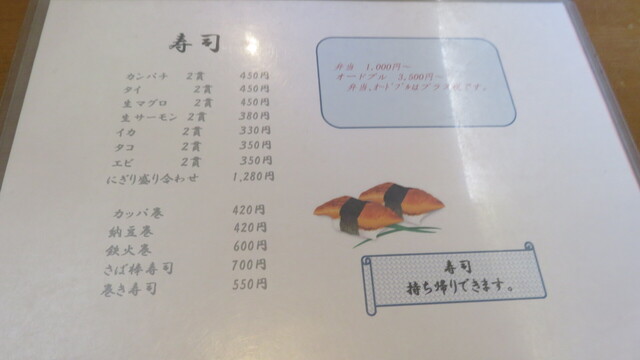 寿司
カンパチ 2貫 450円
タイ 2貫 450円
生マグロ 2貫 450円
生サーモン 2貫 380円
イカ 2貫 330円
タコ 2貫 350円
エビ 2貫 350円
にぎり盛り合わせ 1,280円
カッパ巻 420円
納豆巻 420円
鉄火巻 600円
さば棒寿司 700円
巻き寿司 550円
弁当 1,000円～
オードブル 3,500円～
弁当、オードブルはプラス税です。
寿司
持ち帰りできます。